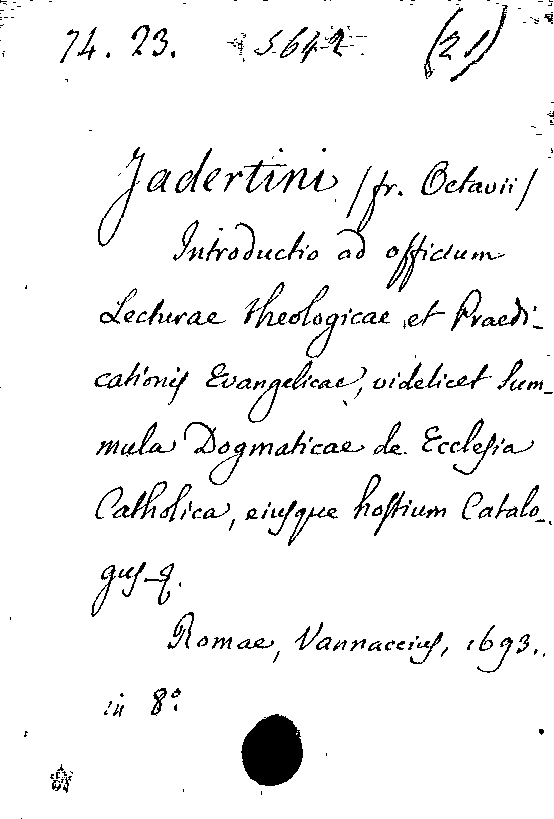 74. 23. 5642 (21)
Jadertini /fr. Octavii/
Introductio ad officium
Lecturae theologicae et Praedi-
cationis Evangelicae, videlicet Sum-
mula Dogmaticae de Ecclesia
Catholica, eiusque hostium Catalo-
gus
Romae, Vannaccius, 1693.
in 8°